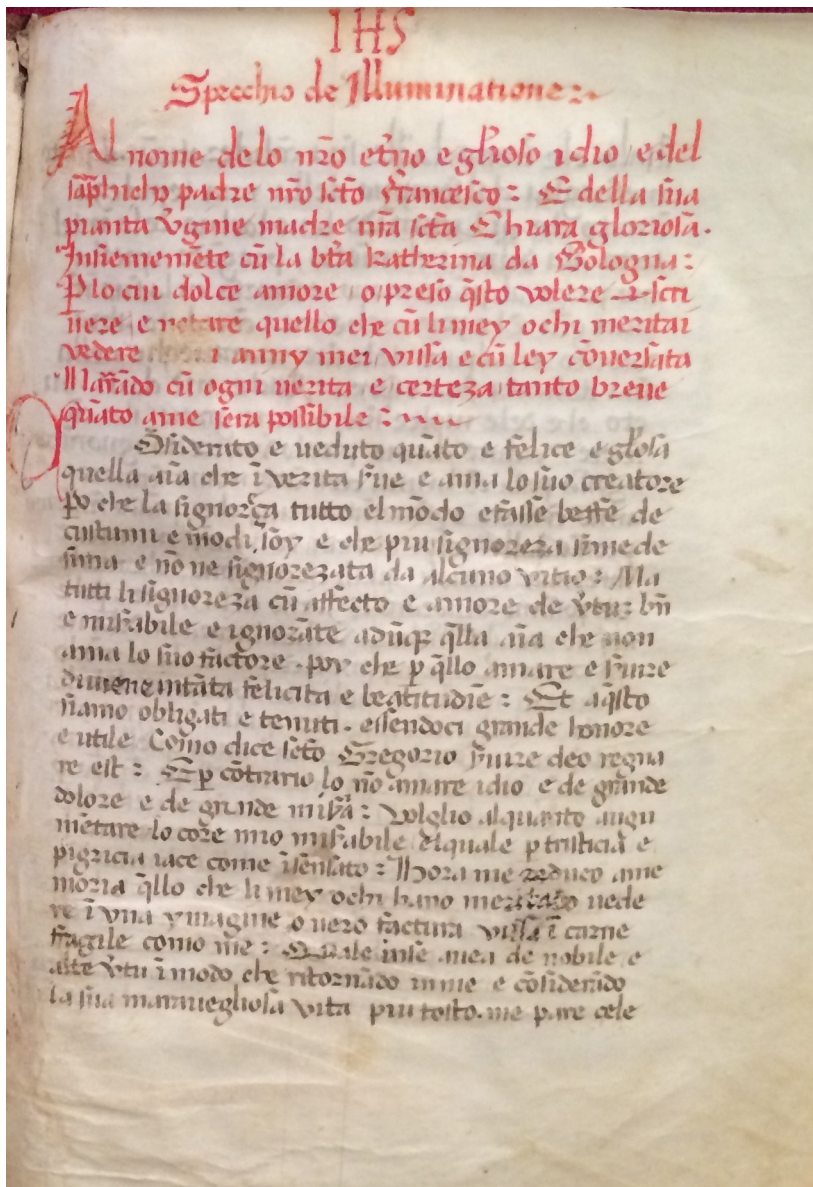 IHS
Specchio de Illuminatione :~
Al nome de lo nr̃o et̃no e gl̃ioso idio e del
sap̃hicho padre nr̃o sc̃to Francesco : E della sua
pianta v̄gine madre nr̃a sc̃ta Chiara gloriosa .
Insiemem̃ete cũ la bt̃a Katherina da Bologna :
P̱ lo cui dolce amore / o preso q̃sto volere de scri
uere e quello che cũ li mey ochi meritai
vedere i anny mei vissa e cũ ley c̃ouersata
Narr̃ado cũ ogni uerita e certeza tanto breue
qũato a me sera possibile :
C̃osiderito e ueduto qũato e felice e gl̃osa
quella aĩa che ĩ verita s̃ue e ama lo suo creatore
p̱o che la signoreça tutto el m̃odo e fasse beffe de
custumi e m̃odi soy e che piu signoreza si mede
sima e nõ ne signorezata da alcuno vitio : Ma
tutti li signoreza cũ affecto e amore de v̄tu : bñ
e mis̃abile e ignor̃ate adũq̃ q̃lla aĩa che non
ama lo suo factore . poy che p̱ q̃llo amare e s̃uire
diuiene int̃ata felicita e beatitudiẽ : Et a q̃sto
siamo obligati e tenuti . essendoci grande honore
e utile Como dice sc̃to Gregorio s̃uire deo regna
re est : E p̱ c̃otrario lo nõ amare idio e de grande
dolore e de grande mis̃ia : Volglio alquanto augu
m̃etare lo core mio mis̃abile el quale p̱ tristicia e
pigricia iace come ĩsensato : Hora me reduco a me
moria q̃llo che li mey ochi hano meritato uede
re ĩ vna ymagine o uero factura vissa ĩ carne
fragile como me : Quale in se auea de nobile e
alte v̄tu ĩ modo che ritorñado in me e c̃osider̃ado
la sua marauegliosa vita piu tosto . me pare cele